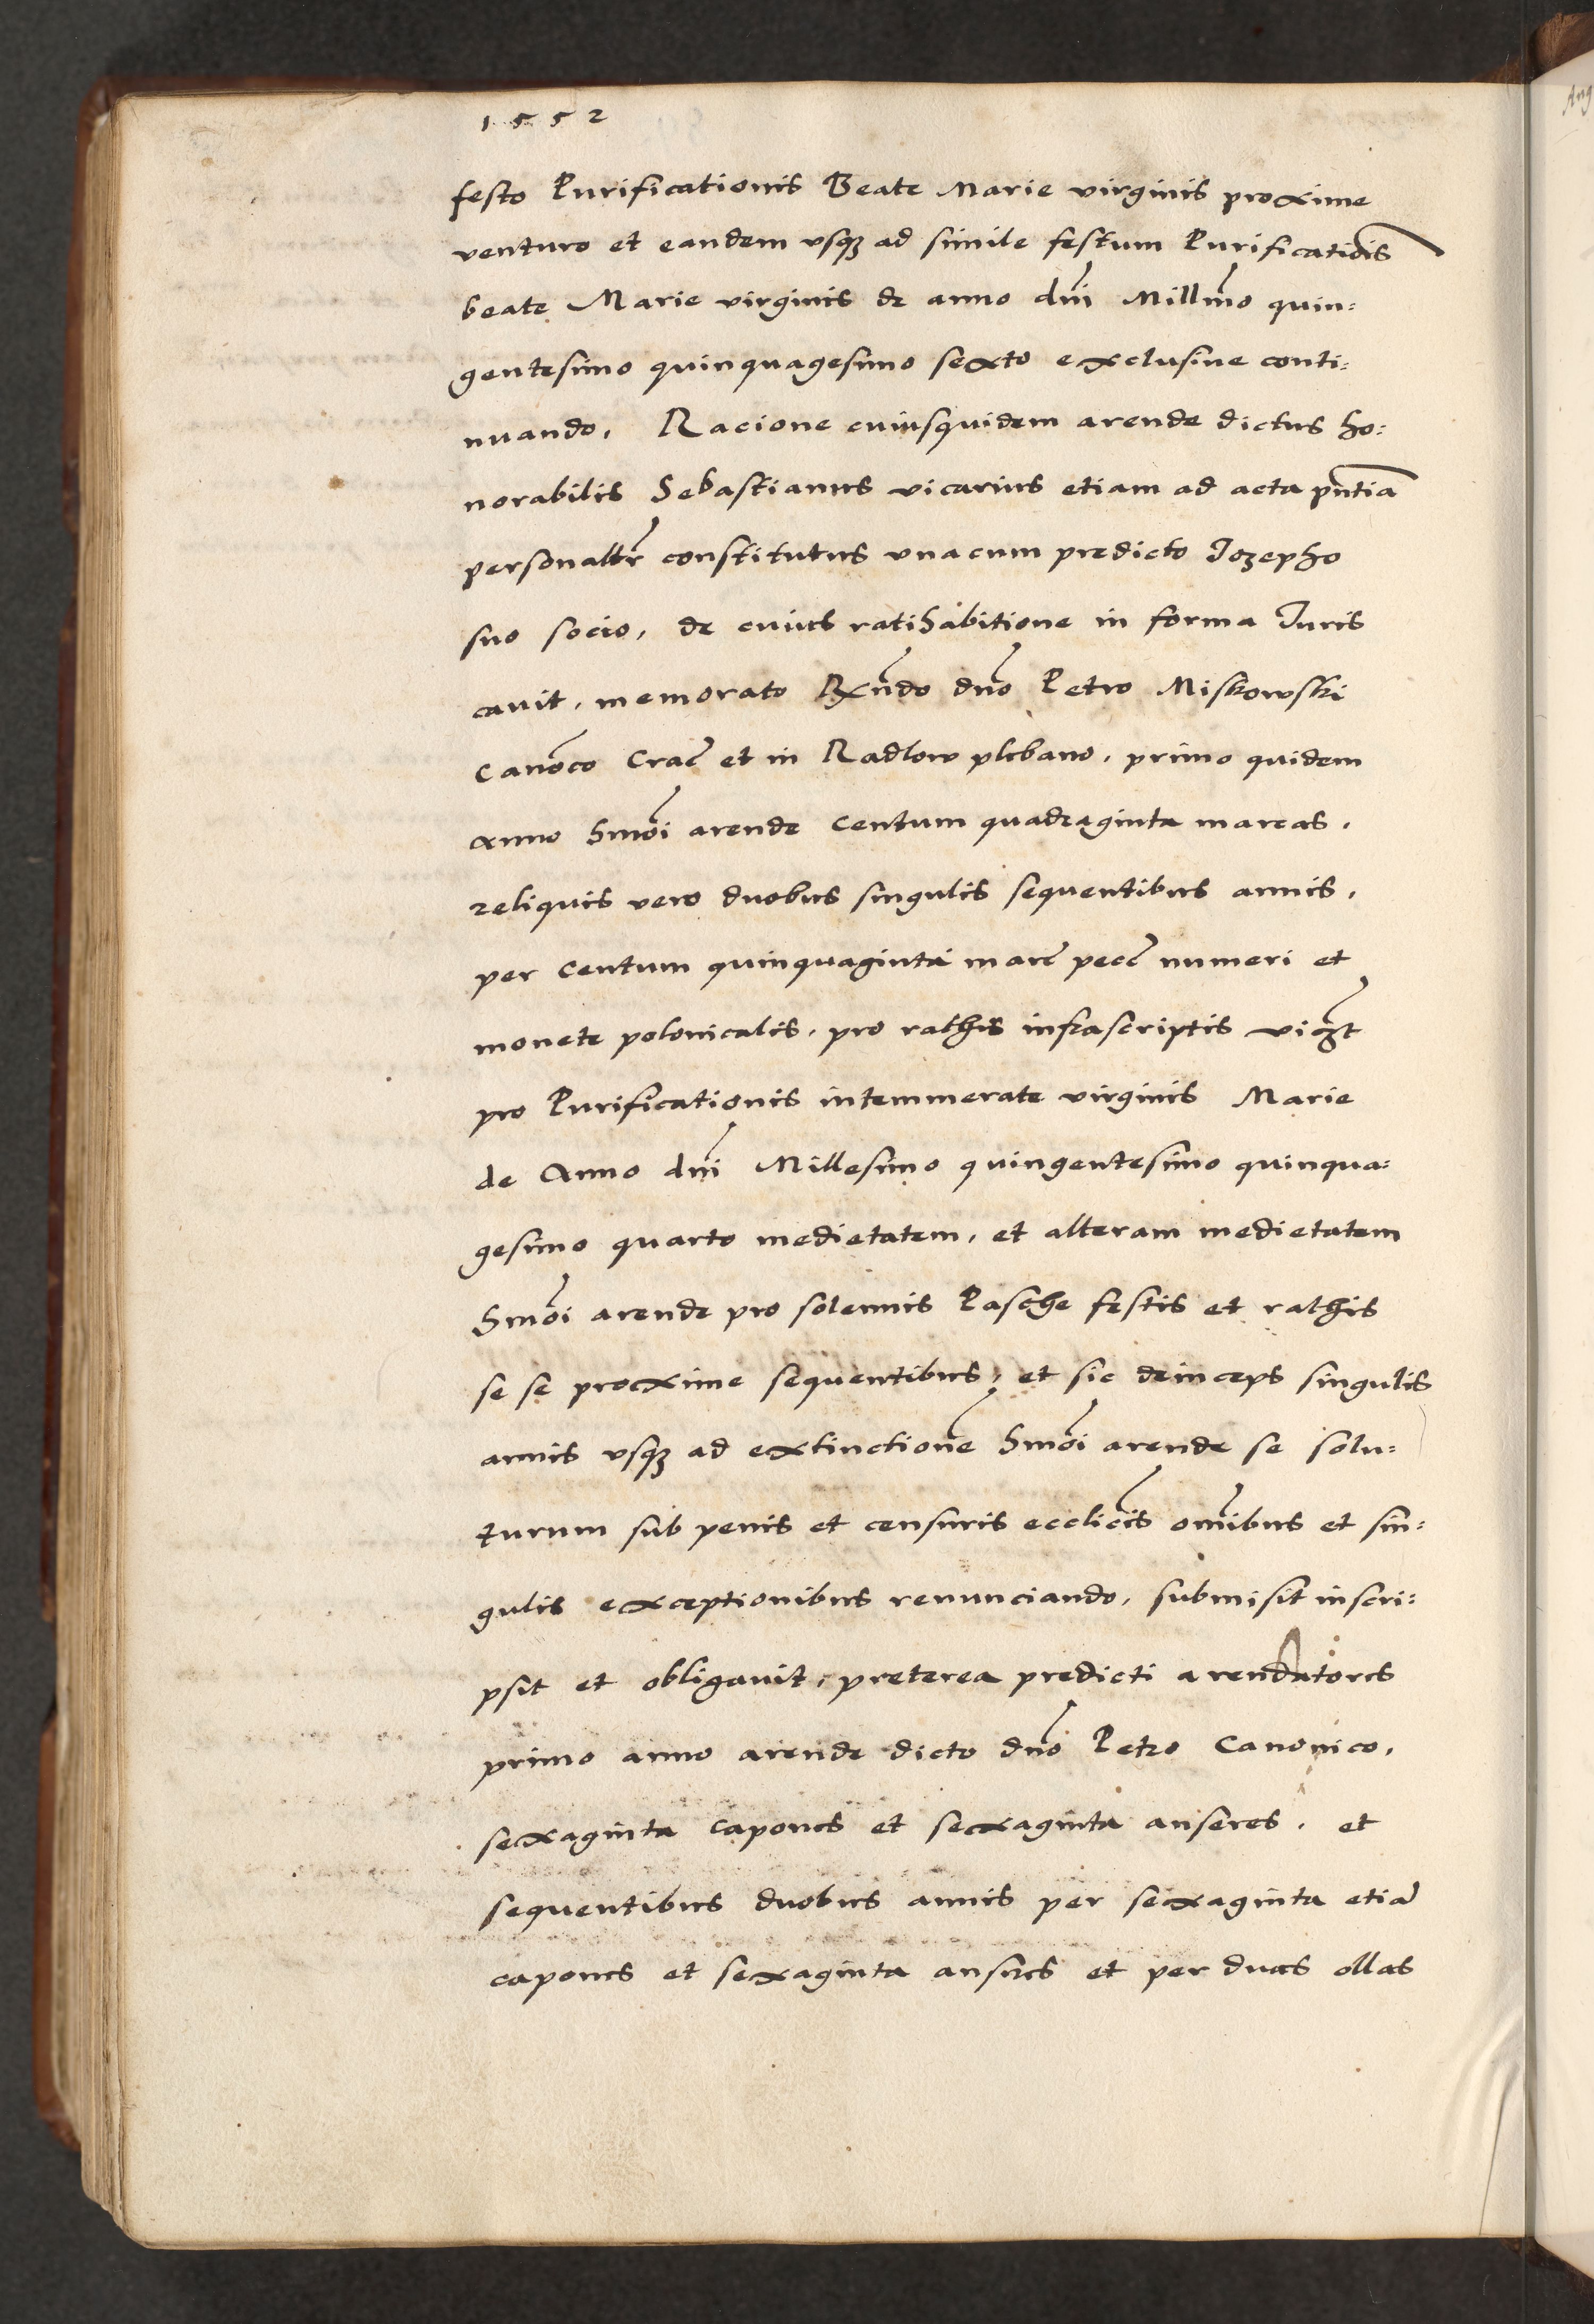 1552
festo Purificationis Beate Marie virginis proxime
venturo et eandem usq; ad simile festum Purificatiois
beate Marie virginis de anno dni Millmo quin:
gentesimo quinquagesimo sexto exclusive conti:
nuando. Racione cuiusquidem arende dictus ho:
norabilis Sebastianus vicarius etiam ad acta pntia
personaltr constitutus una cum predicto Jozepho
suo socio, de cuius ratihabitione in forma Juris
cavit, memorato Rxndo dno Petro Miskowski
Canoco Crac et in Radlow plebano, primo quidem
anno Smoi arende centum quadraginta marcas.
reliquis vero duobus singulis sequentibus annis,
per centum quinquaginta marc pecc numeri et
monete polonicalis, pro rathis infrascriptis vigzt
pro Purificationis intemmerate virginis Marie
de Anno dni Millesimo quingentesimo quinqua:
gesimo quarto medietatem, et alteram medietatem
Smoi arende pro solennis Pasche festis et rathis
se se proxime sequentibus, et sic deinceps singulis
annis usq; ad extinctione Smoi arende se solu:
turum sub penis et censuris ecclicis omibus et sin:
gulis exceptionibus renunciando, submisit inscri:
psit et obligavit, preterea predicti arendatores
primo anno arende dicto dno Petro Canonico,
sexaginta capones et sexaginta anseres, et
sequentibus duobus annis per sexaginta etia
capones et sexaginta ansres et per duas ollas